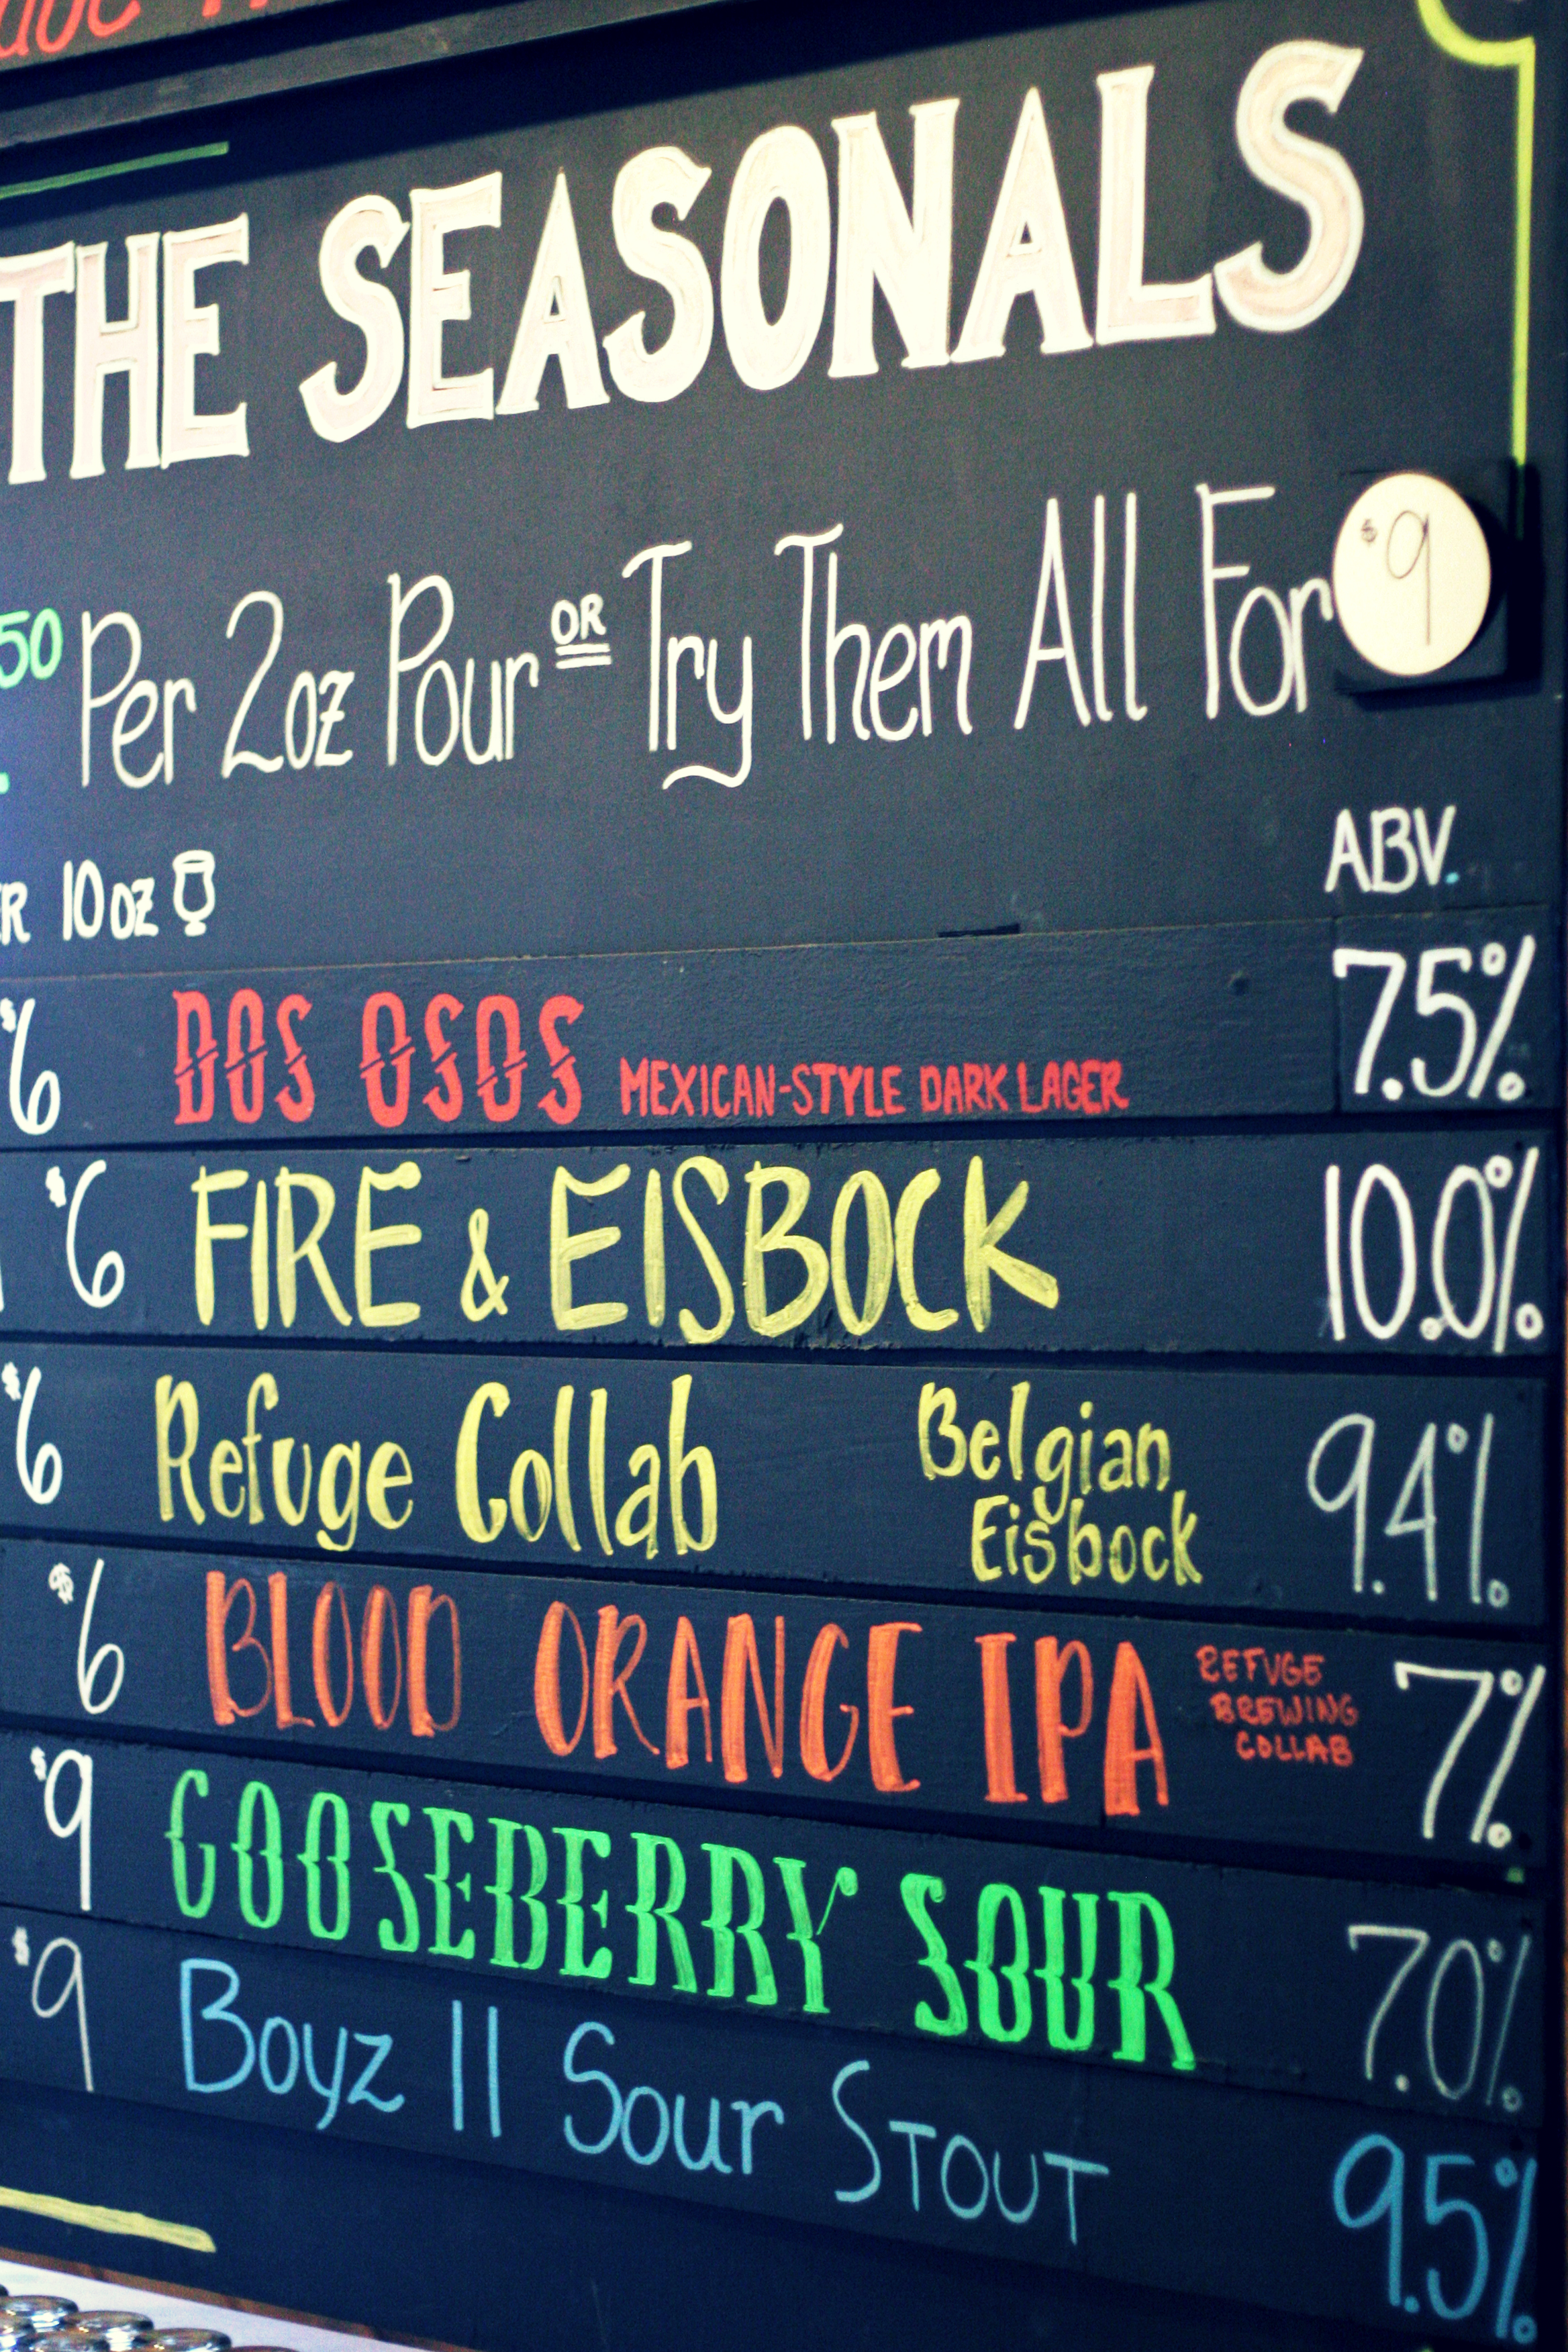 THE SEASONALS
50 Per 2oz Pour OR Try Them All For $9
10oz
ABV.
$6 DOS OSOS MEXICAN-STYLE DARK LAGER 7.5%
$6 FIRE & EISBOCK 10.0%
$6 Refuge Collab Belgian Eisbock 9.4%
$6 BLOOD ORANGE IPA REFUGE BREWING COLLAB 7%
$9 GOOSEBERRY SOUR 7.0%
$9 Boyz II Sour STOUT 9.5%